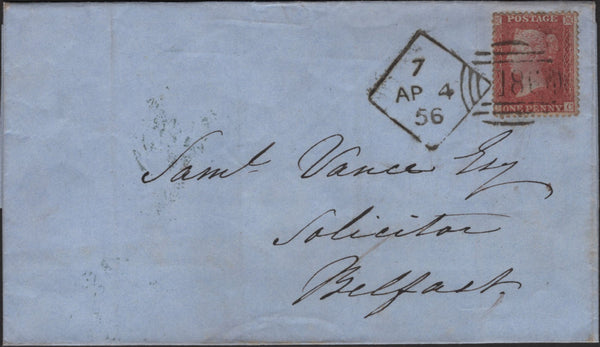 POSTAGE
ONE PENNY
7
AP 4
56
Saml. Vance Esq
Solicitor
Belfast.